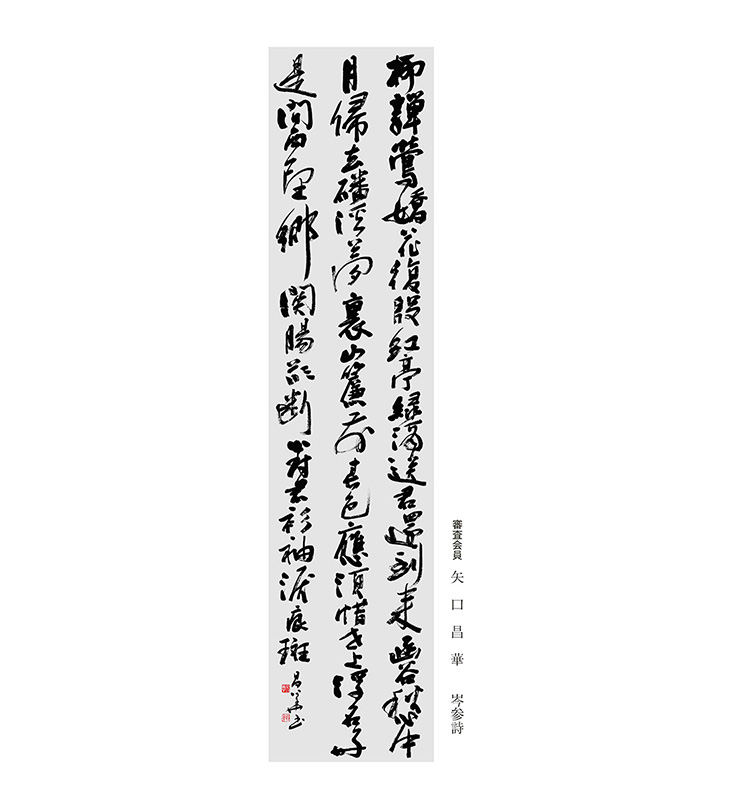 柳嚲鶯嬌花復殷紅亭緑酒送君還到来函谷愁中
月歸去磻渓夢裏山簾前春色應須惜世上浮名好
是閑西望郷関腸欲断對君衫袖涙痕斑
昌華書
審査会員 矢口昌華 岑参詩